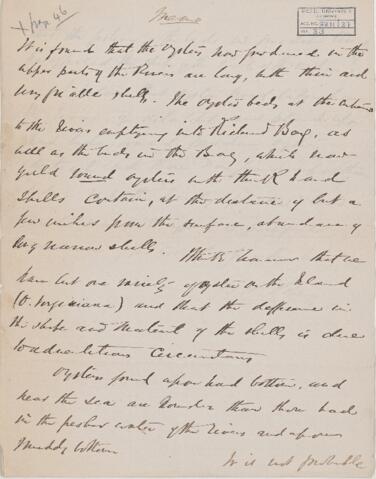 It is found that the oysters now produced in the
upper parts of the Rivers are long, with thin and
very friable shells. The oyster beds, at the
to the rivers emptying into Richmond Bay, as
well as the beds in the Bay, which now
yield round oysters with thick hard
shells contain, at the distance of but a
few inches from the surface, abundance of
long narrow shells. that we
have but one variety of oyster on the Island
(O. Virginiana) and that the difference in
the shape and material of the shells is due
to adventitious circumstances
Oysters found upon hard bottom, and
near the sea are rounder than those had
in the fresher water of the rivers and upon
muddy bottom
It is not probable